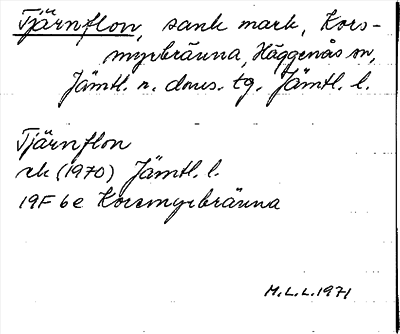 Tjärnflon, sank mark, Kors-
myrbränna, Häggenås sn,
Jämtl. n. doms. tg. Jämtl. l.
Tjärnflon
rk (1970) Jämtl. l.
19F 6e Korsmyrbränna
M.L.L. 1971